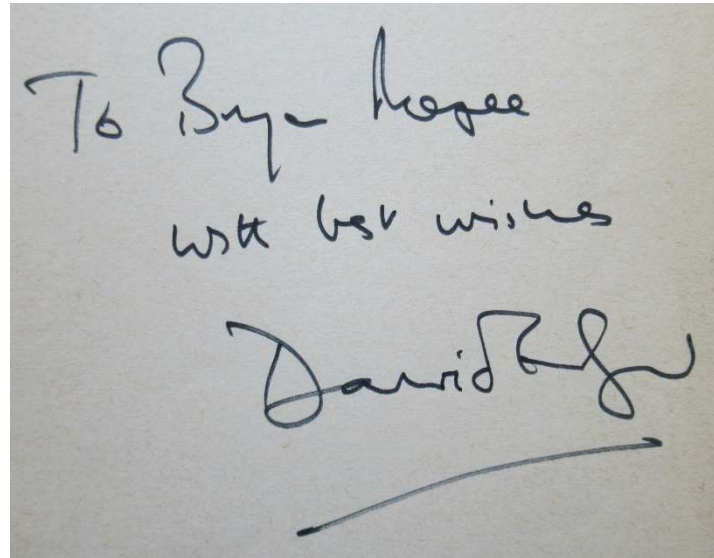 To Bryan Magee
with best wishes
David